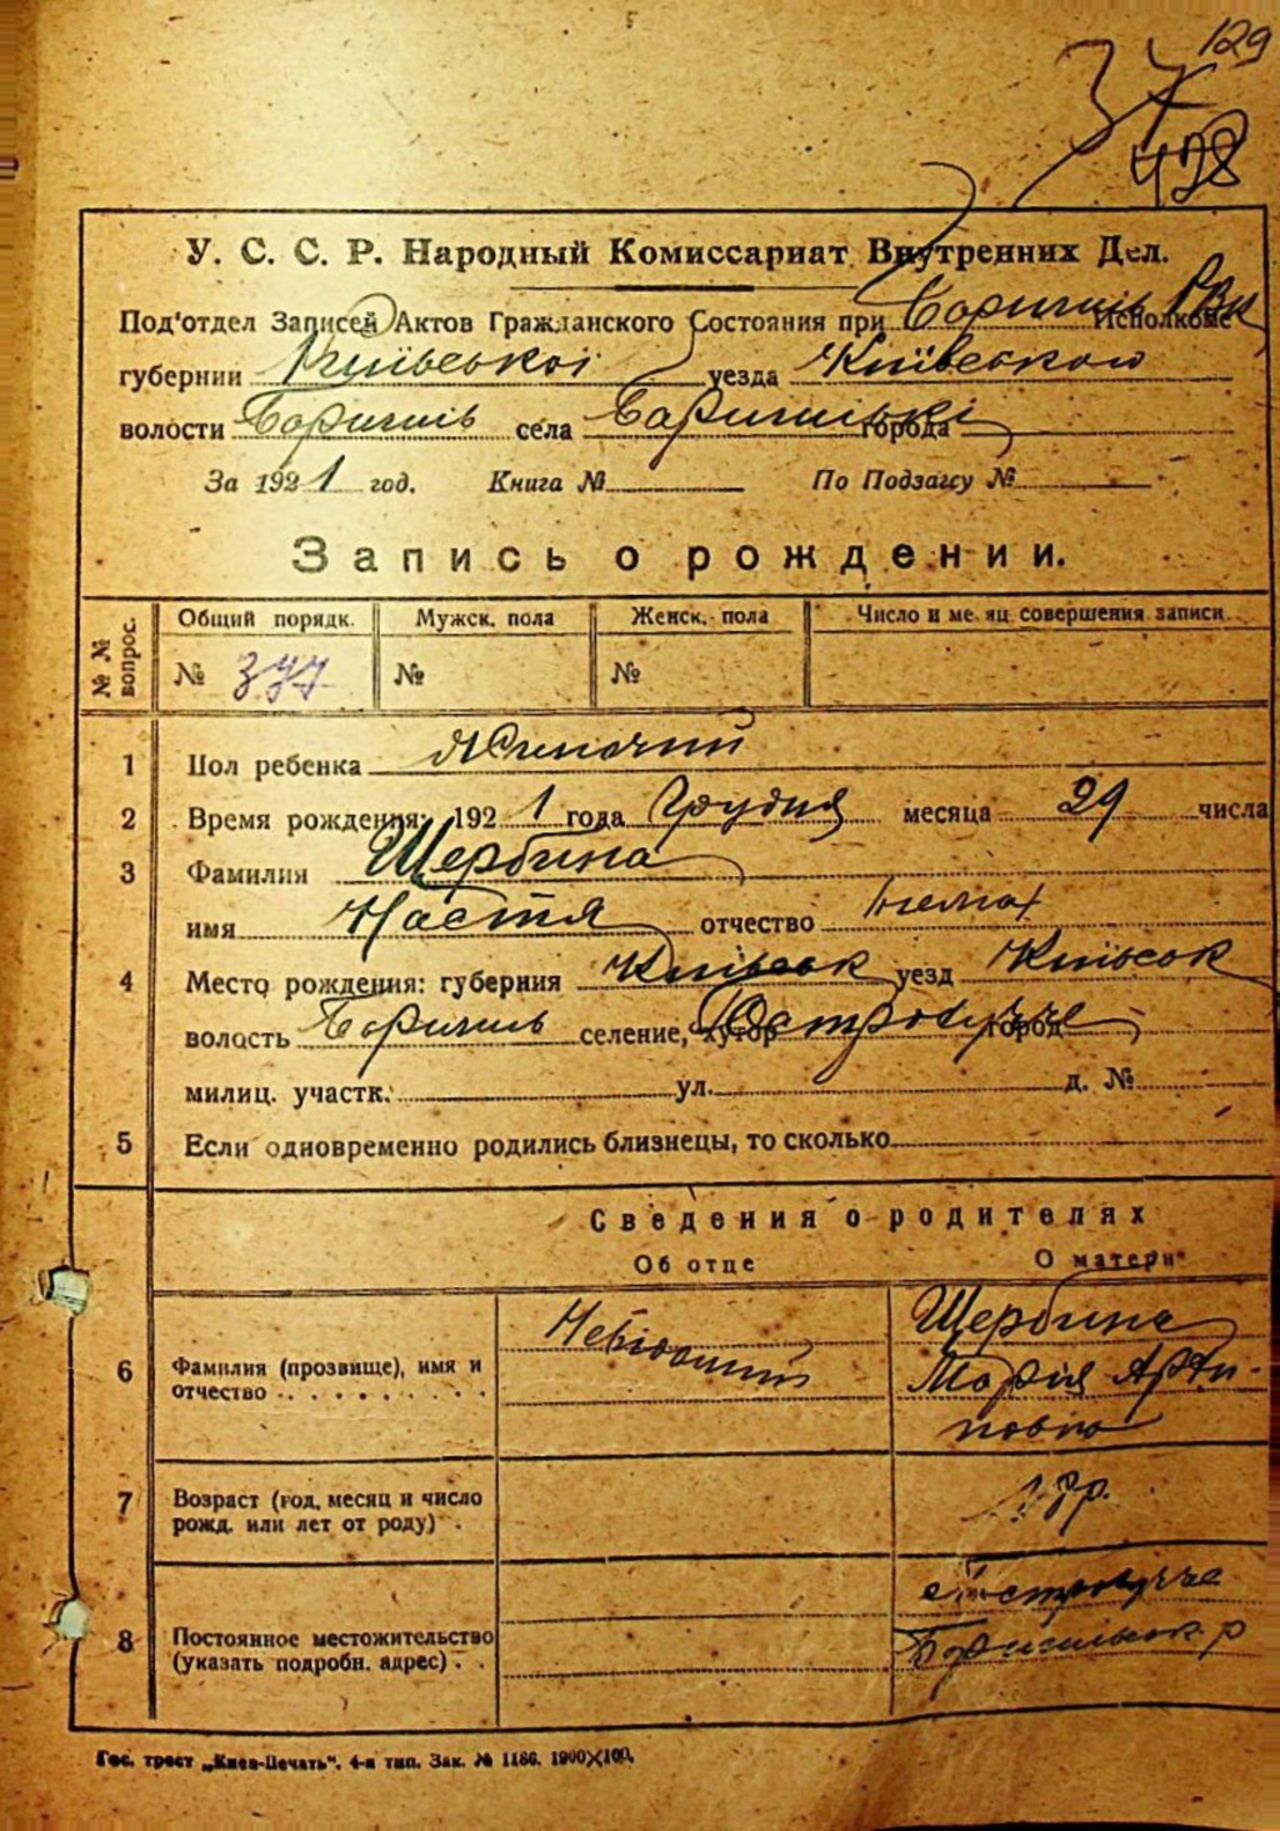 129
37
428
У. С. С. Р. Народный Комиссариат Внутренних Дел.
Под'отдел Записей Актов Гражданского Состояния при Исполкоме
губернии Київської уезда Київського
волости Бориспіль села города
За 1921 год. Книга № По Подзагсу №
Запись о рождении.
№№ вопрос. Общий порядк. Мужск. пола Женск. пола Число и месяц совершения записи
№ 377 № №
1 Пол ребенка Жіночий
2 Время рождения: 1921 года Грудня месяца 29 числа
3 Фамилия Щербина
имя Настя отчество немає
4 Место рождения: губерния Київськ уезд Київськ
волость Бориспіль селение, хутор город
милиц. участк. ул. д. №
5 Если одновременно родились близнецы, то сколько
Сведения о родителях
Об отце О матери
6 Фамилия (прозвище), имя и отчество Невідомий Щербина
Марія
7 Возраст (год, месяц и число рожд. или лет от роду)
8 Постоянное местожительство (указать подробн. адрес)
Гос. трест „Киев-Печать". 4-я тип. Зак. № 1186. 1900×100.